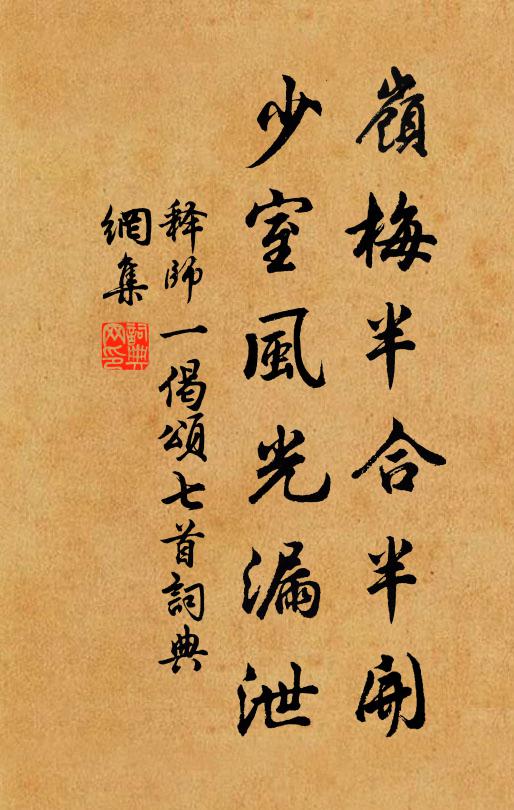 嶺梅半合半開
少室風光漏泄
释師一偈頌七首詞典
網集
詞典
网印